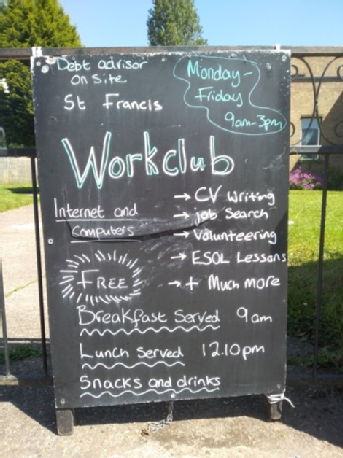 Debt advisor
on site
St Francis
Monday-
Friday
9am-3pm
Workclub
Internet and
Computers
→ CV Writing
→ Job Search
→ Volunteering
→ ESOL Lessons
→ + Much more
FREE
Breakfast Served 9am
Lunch Served 12.10pm
Snacks and drinks